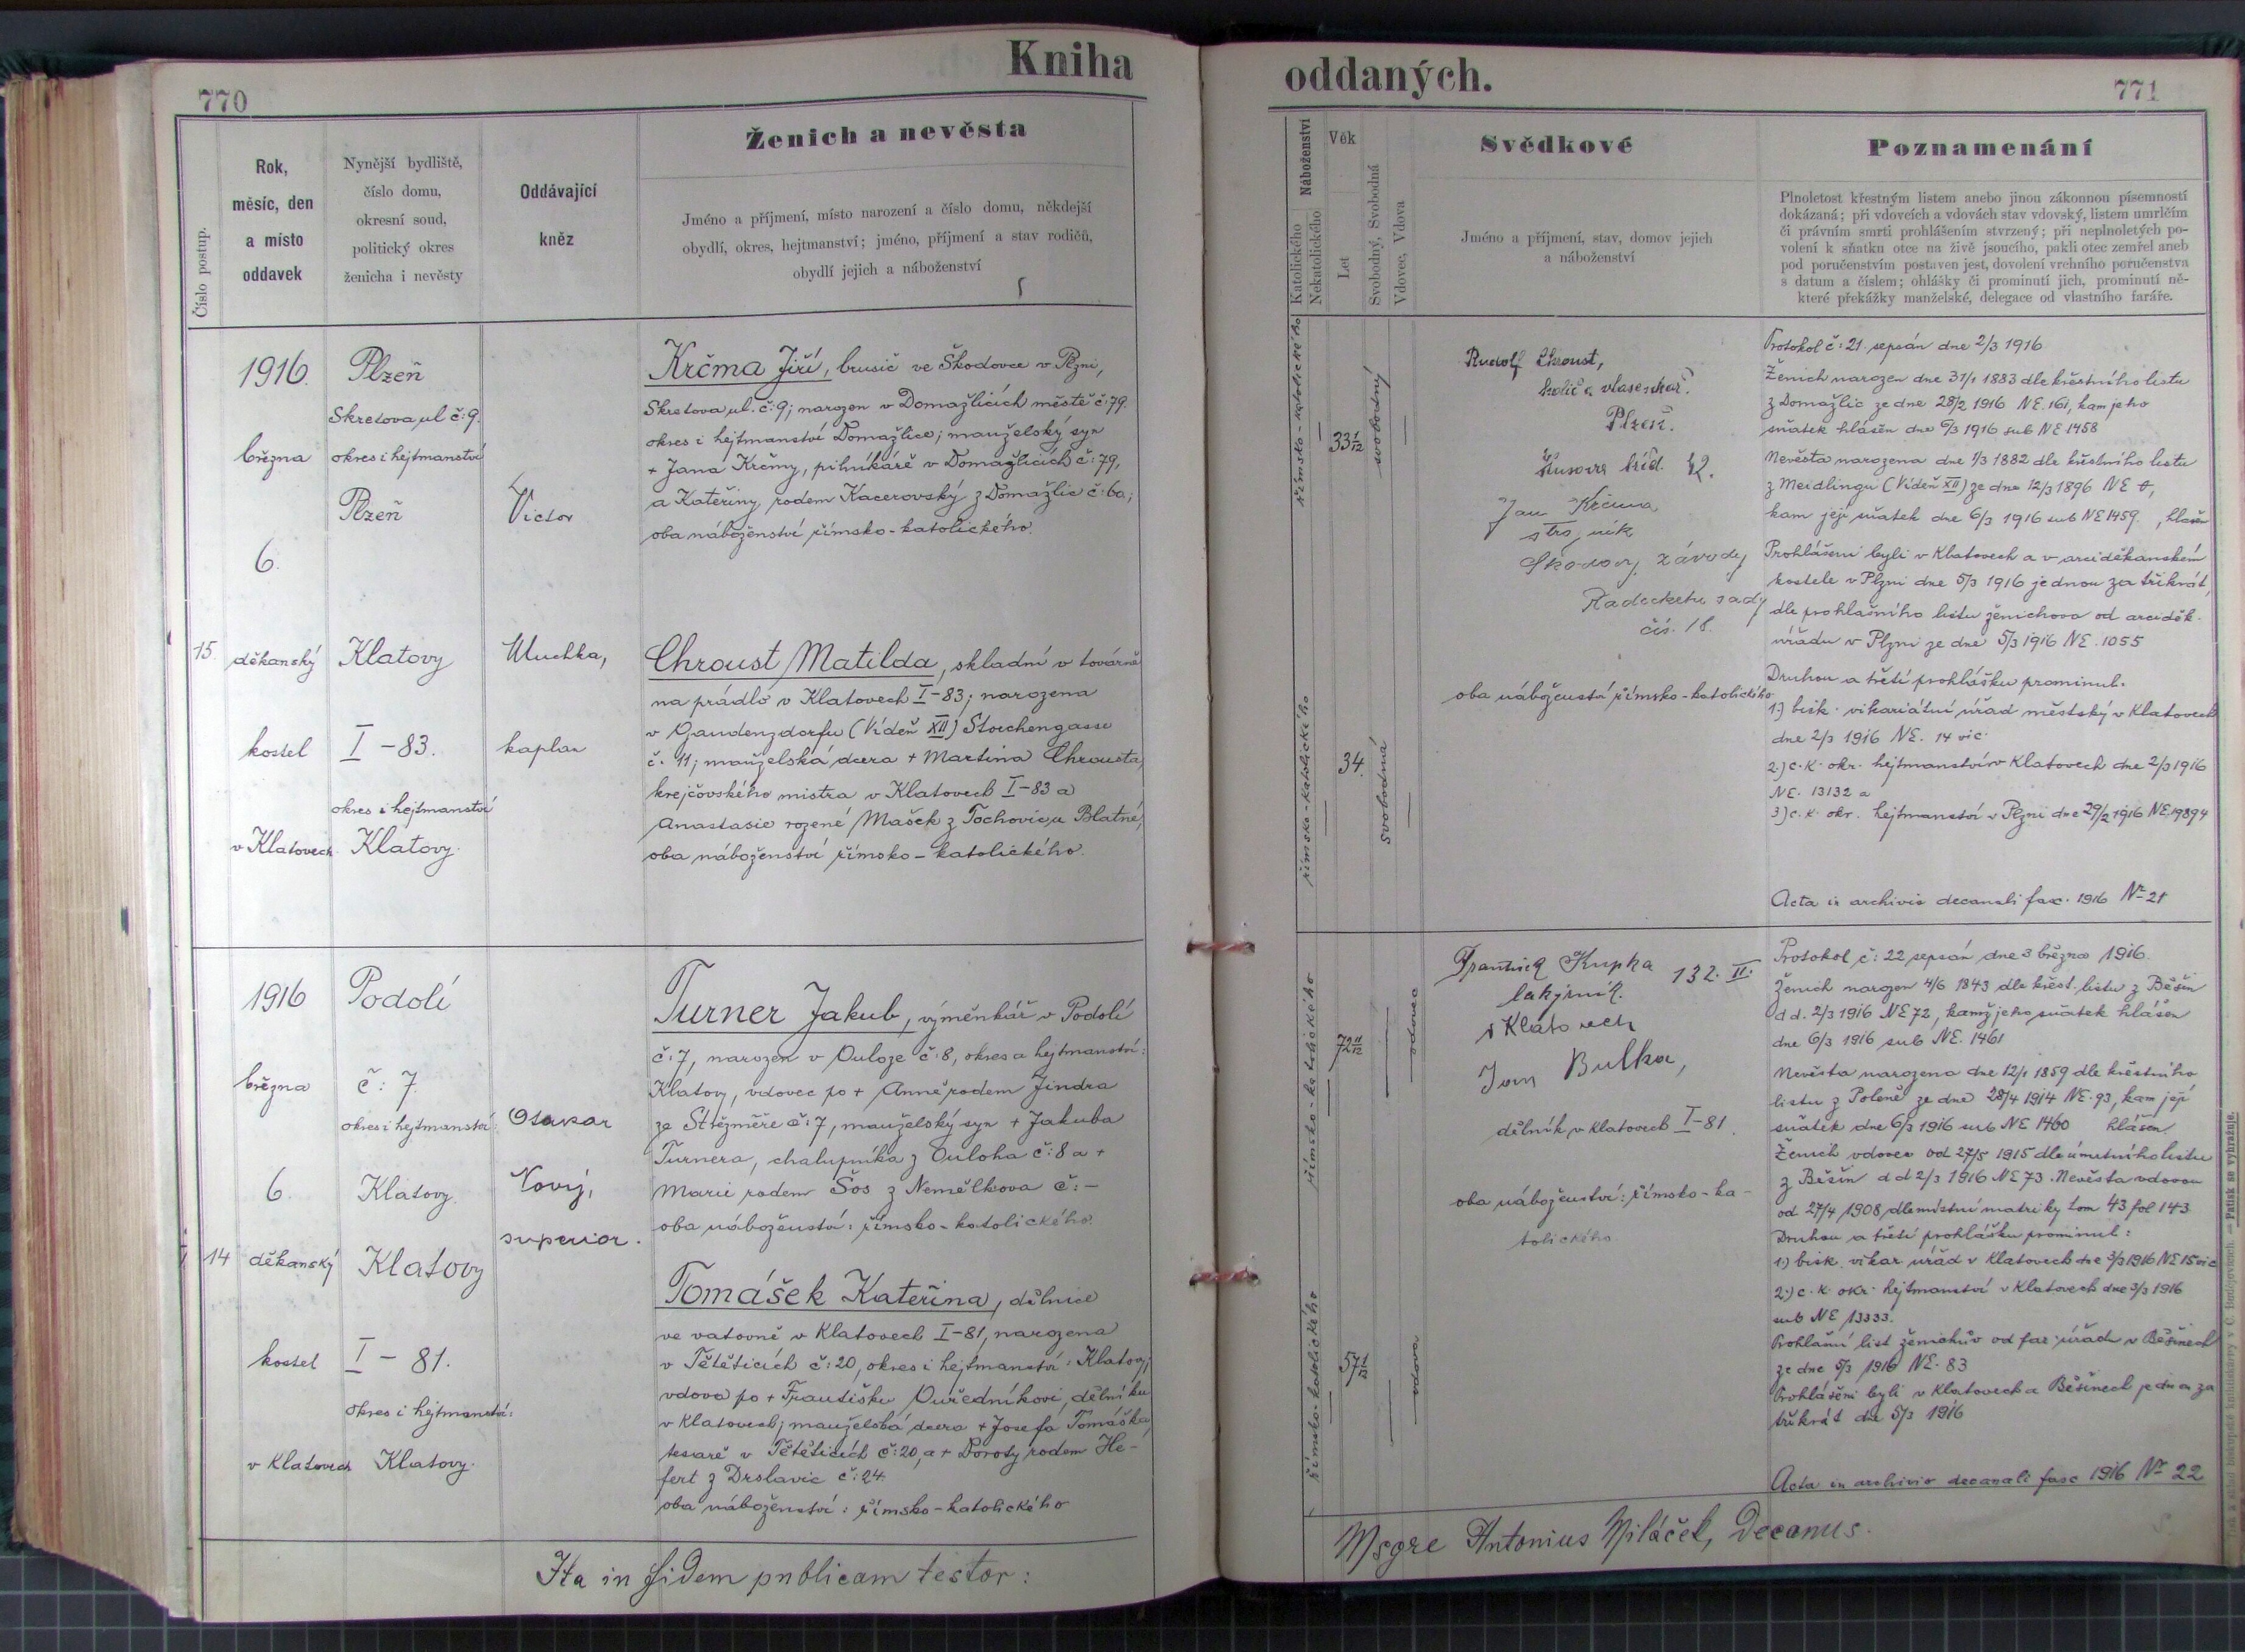 Kniha
oddaných.
770
771
Číslo postup.
Rok,
měsíc, den
a místo
oddavek
Nynější bydliště,
číslo domu,
okresní soud,
politický okres
ženicha i nevěsty
Oddávající
kněz
Ženich a nevěsta
Jméno a příjmení, místo narození a číslo domu, někdejší
obydlí, okres, hejtmanství; jméno, příjmení a stav rodičů,
obydlí jejich a náboženství
Náboženství
Katolického
Nekatolického
Věk
Let
Svobodný, Svobodná
Vdovec, Vdova
Svědkové
Jméno a příjmení, stav, domov jejich
a náboženství
Poznamenání
Plnoletost křestným listem anebo jinou zákonnou písemností
dokázaná; při vdovcích a vdovách stav vdovský, listem umrlčím
či právním smrti prohlášením stvrzený; při neplnoletých po-
volení k sňatku otce na živě jsoucího, pakli otec zemřel aneb
pod poručenstvím postaven jest, dovolení vrchního poručenstva
s datum a číslem; ohlášky či prominutí jich, prominutí ně-
které překážky manželské, delegace od vlastního faráře.
15.
1916.
března
6.
děkanský
kostel
v Klatovech.
Plzeň
Skretova ul č: 9.
okres i hejtmanství
Plzeň
Klatovy
I - 83.
okres i hejtmanství
Klatovy.
Victor
Muchka,
kaplan
Krčma Jiří, brusič ve Škodovce v Plzni,
Skretova ul. č: 9; narozen v Domažlicích městě č: 79.
okres i hejtmanství Domažlice; manželský syn
+ Jana Krčmy, pilníkáře v Domažlicích č: 79,
a Kateřiny, rodem Kacerovský z Domažlic č: 60;
oba náboženství římsko-katolického.
Chroust Matilda, skladní v továrně
na prádlo v Klatovech I-83; narozena
v Gaudenzdorfu (Vídeň XII) Storchengasse
č. 11; manželská dcera + Martina Chrousta,
krejčovského mistra v Klatovech I-83 a
Anastasie rozené Mašek z Tochovic u Blatné,
oba náboženství římsko-katolického.
římsko-katolického
33 1/12
svobodný
římsko-katolického
34.
svobodná
Rudolf Chroust,
holič a vlasenkář.
Plzeň.
Husova tříd. 42.
Jan Krčma
strojník
Škodovy závody
Radeckeho sady
čís. 18.
oba náboženství římsko-katolického
Protokol č: 21. sepsán dne 2/3 1916
Ženich narozen dne 31/1 1883 dle křestního listu
z Domažlic ze dne 28/2 1916 NE. 161, kam jeho
sňatek hlášen dne 6/3 1916 sub NE 1458
Nevěsta narozena dne 1/3 1882 dle křestního listu
z Meidlingu (Vídeň XII) ze dne 12/3 1896 NE
kam její sňatek dne 6/3 1916 sub NE 1459. , hlášen
Prohlášeni byli v Klatovech a v arciděkanském
kostele v Plzni dne 5/3 1916 jednou za třikrát,
dle prohlašního listu ženichova od arciděk.
úřadu v Plzni ze dne 5/3 1916 NE. 1055
Druhou a třetí prohlášku prominul:
1.) bisk. vikariátní úřad městský v Klatovech
dne 2/3 1916 NE. 14 vic.
2.) c. k. okr. hejtmanství v Klatovech dne 2/3 1916
NE. 13132 a
3.) c. k. okr. hejtmanství v Plzni dne 29/2 1916 NE 19894
Acta in archivio decanali fasc. 1916 Nr 21
14
1916
března
6.
děkanský
kostel
v Klatovech
Podolí
č: 7.
okres i hejtmanství:
Klatovy.
Klatovy
I - 81.
okres i hejtmanství:
Klatovy.
Otakar
Nový,
superior.
Turner Jakub, výměnkář v Podolí
č: 7, narozen v Ouloze č: 8, okres a hejtmanství:
Klatovy, vdovec po + Anně rodem Jindra
ze Střezměře č: 7, manželský syn + Jakuba
Turnera, chalupníka z Ouloha č: 8 a +
Marie rodem Šos z Nemělkova č: -
oba náboženství: římsko-katolického.
Tomášek Kateřina, dělnice
ve vatovně v Klatovech I-81, narozena
v Tětěticích č: 20, okres i hejtmanství: Klatovy,
vdova po + Františku Ouředníkovi, dělníku
v Klatovech; manželská dcera + Josefa Tomáška,
tesaře v Tětěticích č: 20, a + Doroty rodem He-
fert z Drslavic č: 24.
oba náboženství: římsko-katolického
římsko-katolického
72 11/12
vdovec
římsko-katolického
57 1/12
vdova
František Kupka 132. II.
lakýrník.
v Klatovech
Jan Bulka,
dělník v Klatovech I-81.
oba náboženství: římsko-ka-
tolického.
Protokol č: 22 sepsán dne 3 března 1916.
Ženich narozen 4/6 1843 dle křest. listu z Běšin
d d. 2/3 1916 NE 72, kamž jeho sňatek hlášen
dne 6/3 1916 sub NE. 1461
Nevěsta narozena dne 12/1 1859 dle křestního
listu z Poleně ze dne 28/4 1914 NE. 93, kam její
sňatek dne 6/3 1916 sub NE 1460 hlášen.
Ženich vdovec od 27/5 1915 dle úmrtního listu
z Běšin d d 2/3 1916 NE 73. Nevěsta vdovou
od 27/4 1908 dle místní matriky tom 43 fol 143.
Druhou a třetí prohlášku prominul:
1.) bisk. vikar úřad v Klatovech dne 3/3 1916 NE 15 vic
2.) c. k. okr. hejtmanství v Klatovech dne 3/3 1916
sub NE 13333.
Prohlašní list ženichův od far. úřadu v Běšinech
ze dne 5/3 1916 NE. 83
Prohlášeni byli v Klatovech a Běšinech jednou za
třikrát dne 5/3 1916
Acta in archivio decanali fasc 1916 Nr 22
Ita in fidem publicam testor:
Msgre Antonius Miláček, Decanus.
Patisk se vyhražuje.